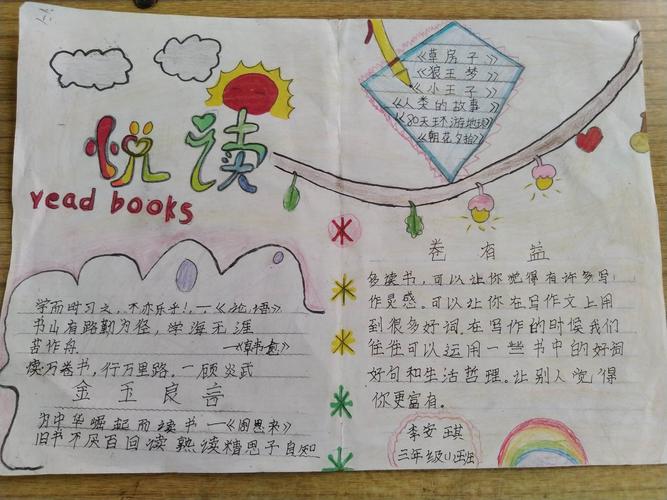 悦读
Yead books
学而时习之，不亦乐乎！—《论语》
书山有路勤为径，学海无涯
苦作舟
读万卷书，行万里路。—顾炎武
金玉良言
为中华崛起而读书—《周恩来》
旧书不厌百回读熟读精思子自知
《草房子》
《狼王梦》
《小王子》
《人类的故事》
《80天环游地球》
《朝花夕拾》
卷有益
多读书，可以让你觉得有许多写
作灵感。可以让你在写作文上用
到很多好词。在写作的时候我们
往往可以运用一些书中的好词
好句和生活哲理。让别人觉得
你更富有。
李安琪
三年级